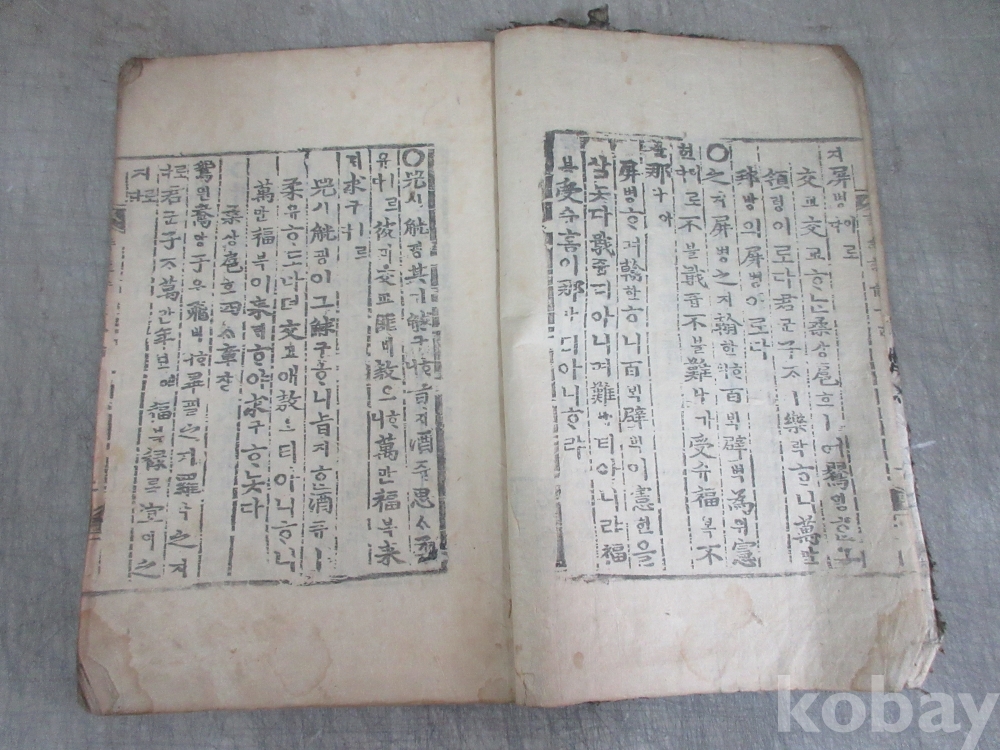 지屛병이로다
交교交교ᄒᆞᄂᆞᆫ桑상扈호ㅣ여鶯영ᄒᆞᆫ그
領령이로다君군子ᄌᆞㅣ樂락ᄒᆞ니萬만
邦방의屛병이로다
○之지屛병之지翰한ᄒᆞ니百ᄇᆡᆨ辟벽為위憲
헌이로다不블戢즙不블難나가受슈福복不
블那나아
屛병ᄒᆞ며翰한ᄒᆞ니百ᄇᆡᆨ辟벽이憲헌을
삼놋다戢즙디아니며難나티아니랴福
복受슈홈이那나티아니ᄒᆞ랴
○兕시觥굉其기觩구ᄒᆞ니旨지酒쥬思ᄉᆞ柔
유ㅣ로다彼피交교匪비敖오ᄒᆞ니萬만福복来
ᄅᆡ求구ㅣ로다
兕시觥굉이그觩구ᄒᆞ니旨지ᄒᆞᆫ酒쥬ㅣ
柔유ᄒᆞ도다뎌交교애敖오티아니ᄒᆞ니
萬만福복이来ᄅᆡᄒᆞ야求구ᄒᆞ놋다
桑상扈호四ᄉᆞ章쟝
鴛원鴦앙于우飛비ᄒᆞ니畢필之지羅라之지
로다君군子ᄌᆞ萬만年년福복祿록宜의之
지로다
kobay